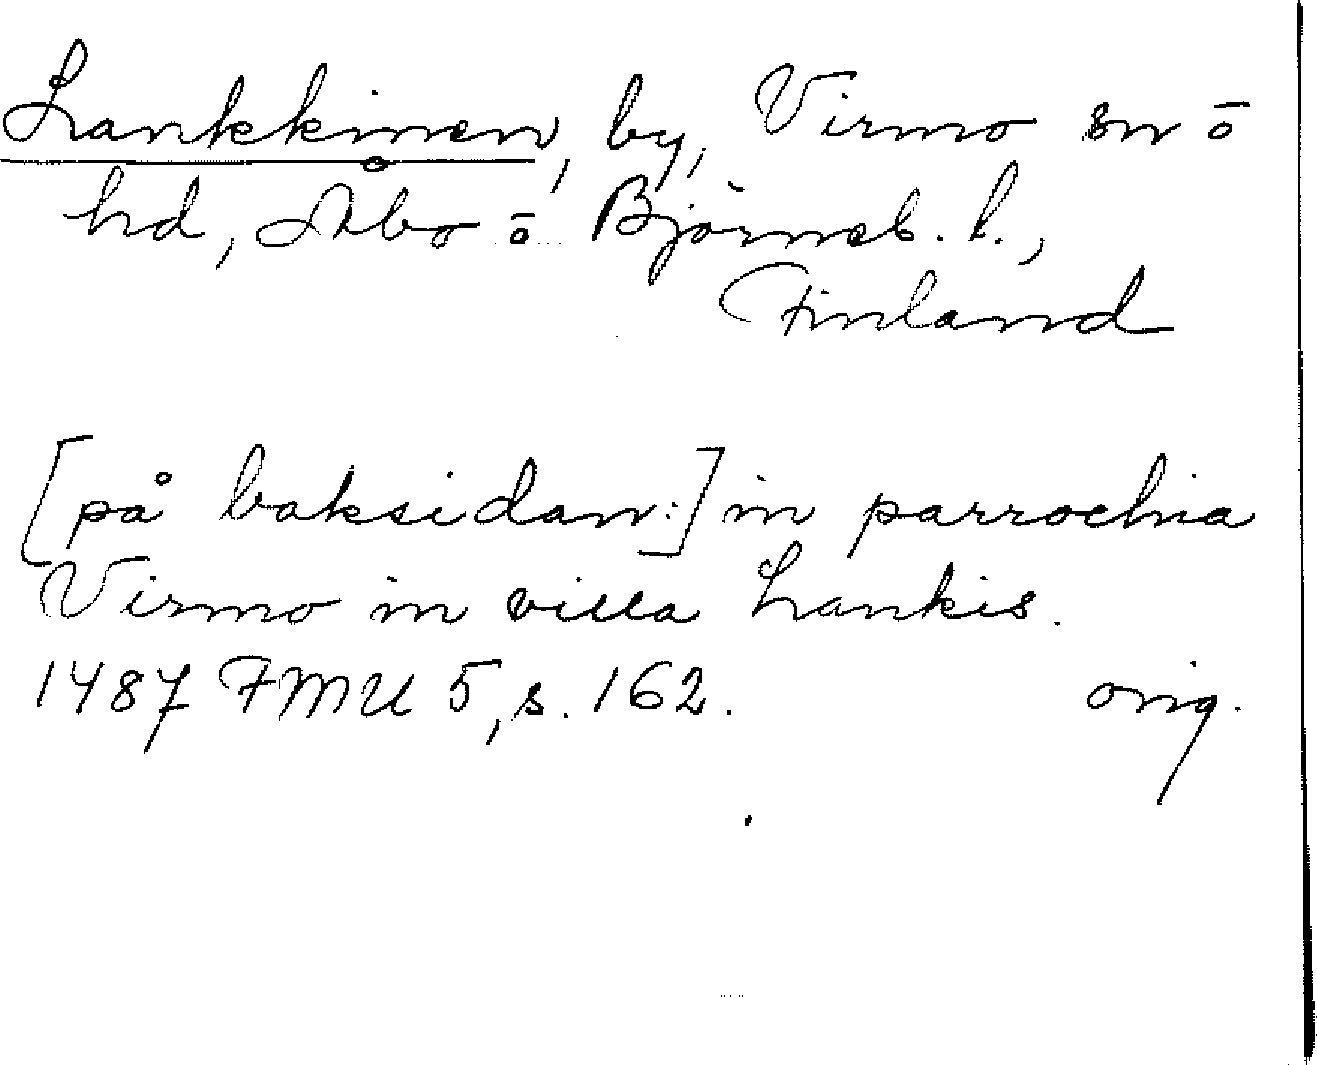 Lankkinen, by, Virmo sn ō
hd, Åbo ō Björneb. l.,
Finland
[på baksidan:] in parrochia
Virmo in villa Lankis.
1487 FMU 5, s. 162. orig.